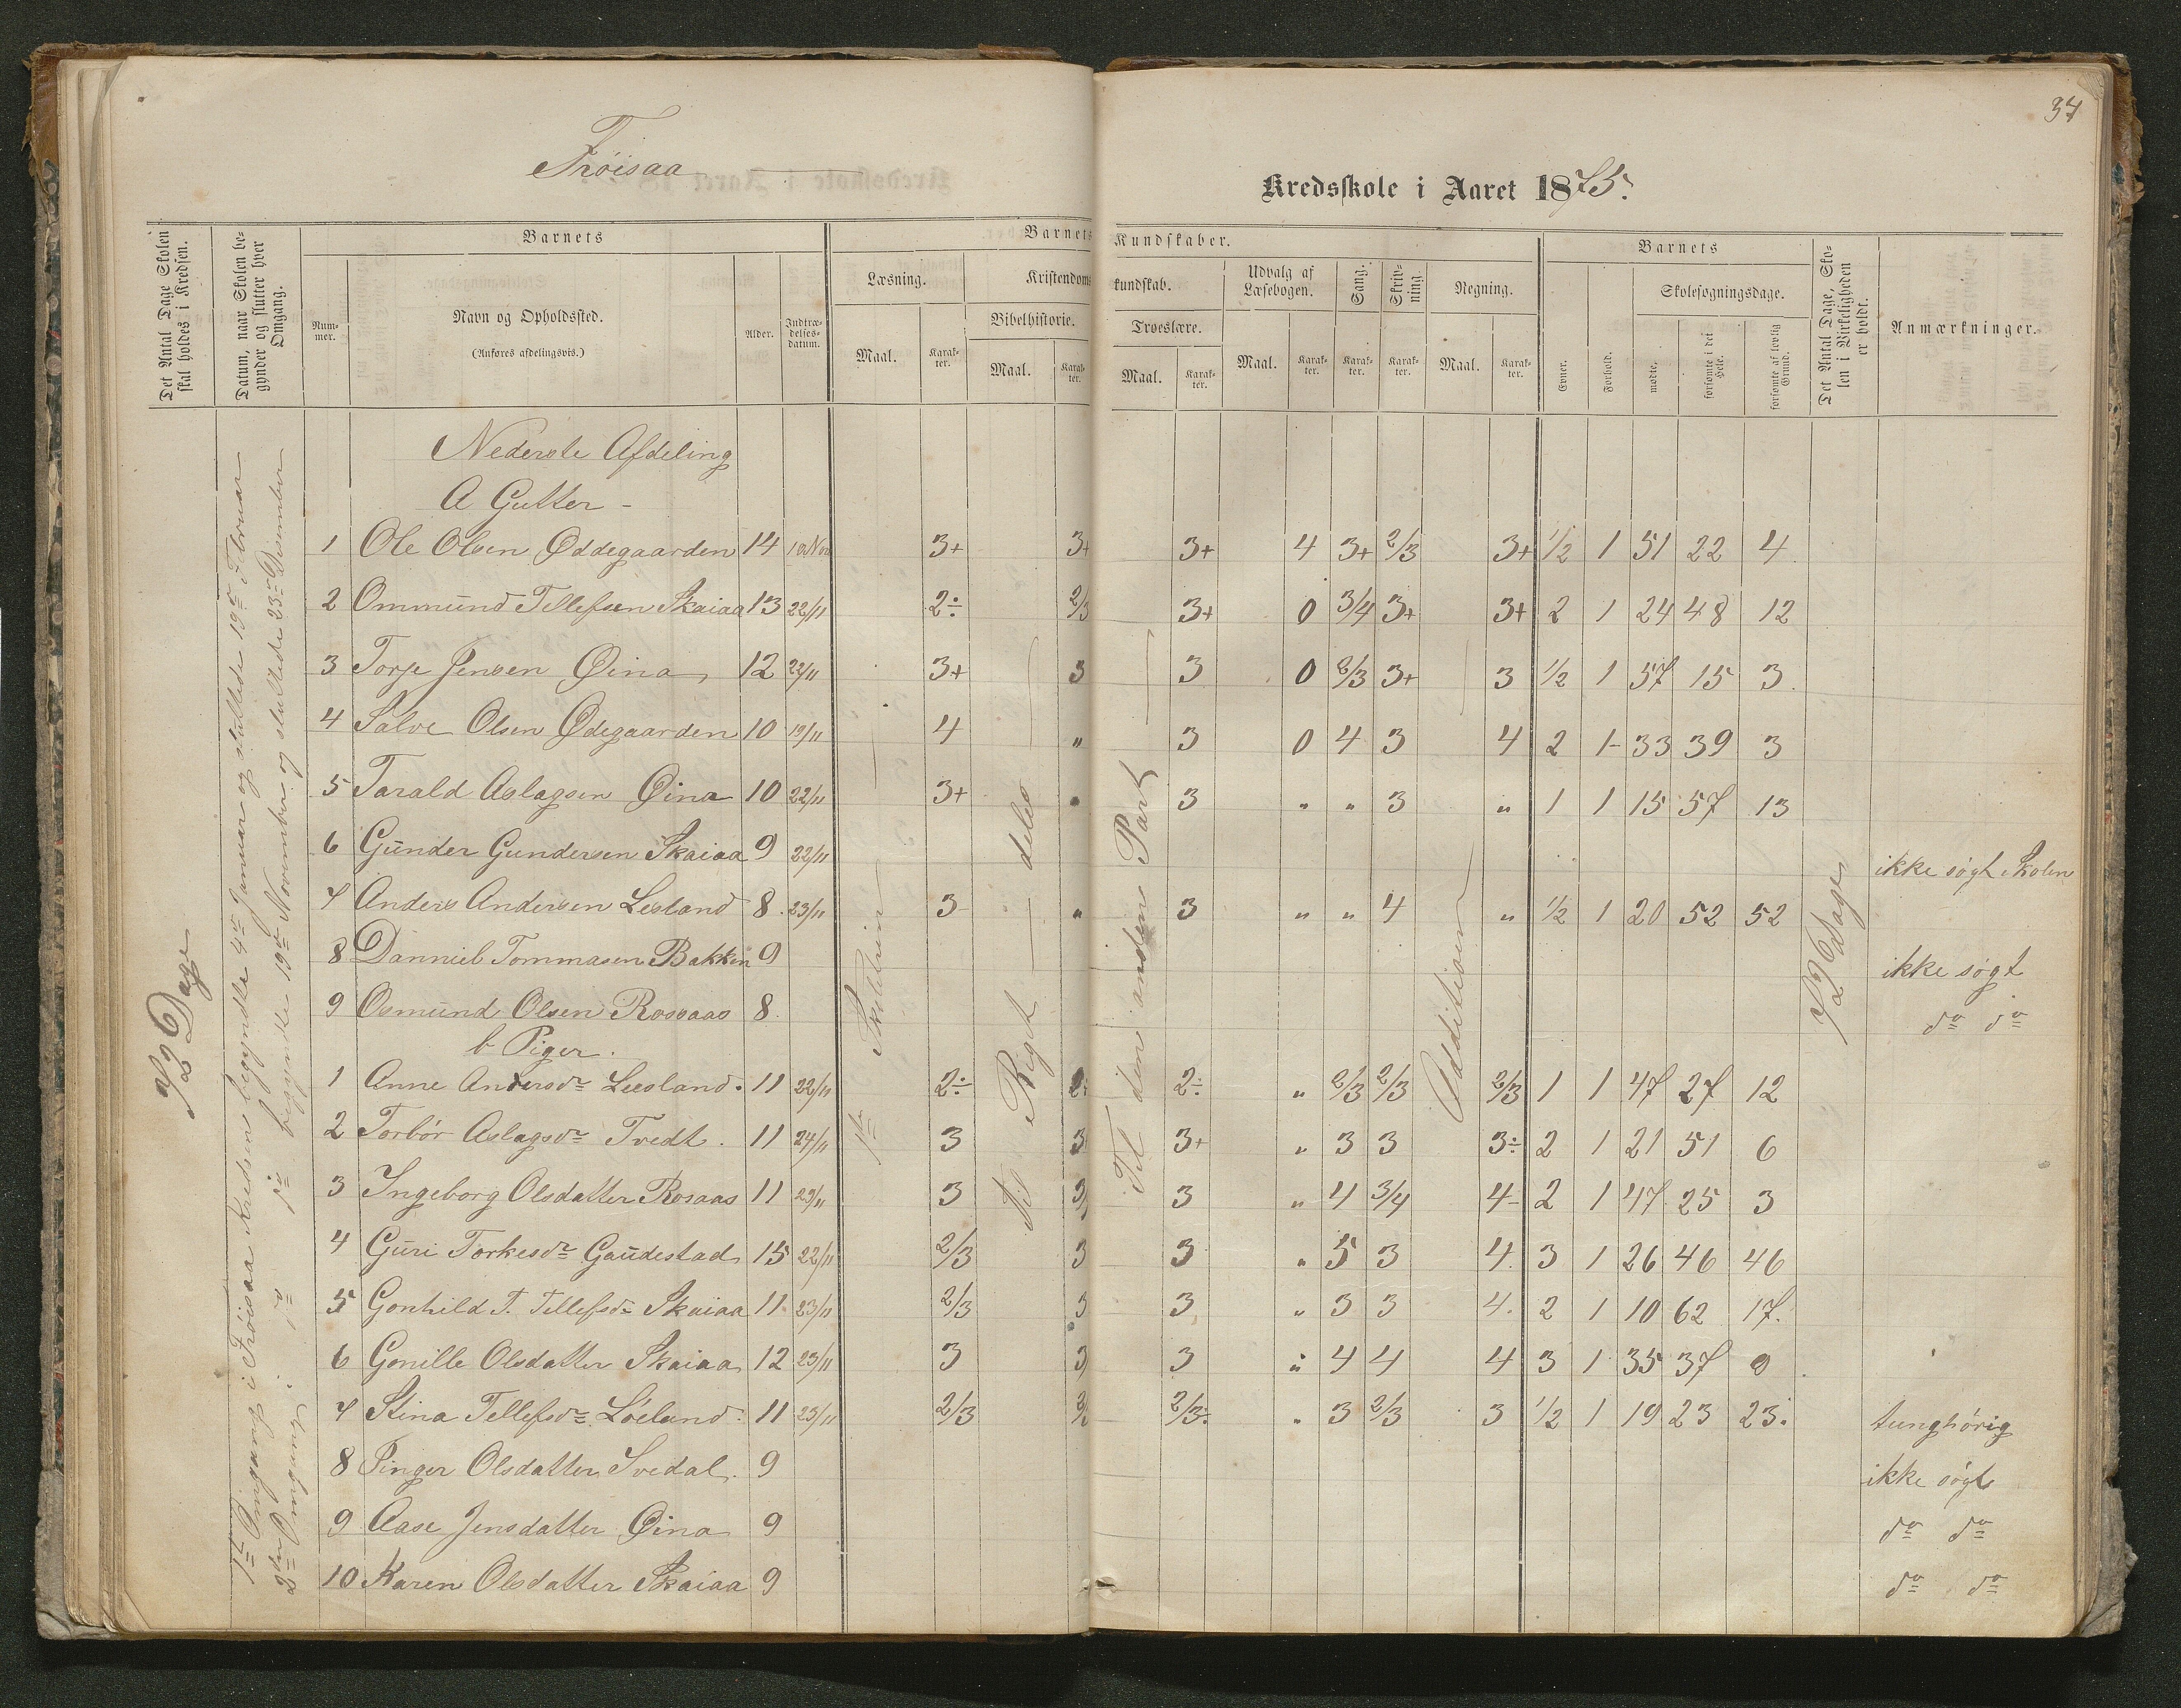 37
Frøisaa
Kredsskole i Aaret 1875.
Det Antal Dage Skolen skal holdes i Kredsen.
Datum, naar Skolen begynder og slutter hver Omgang.
Barnets
Nummer.
Navn og Opholdssted.
(Anføres afdelingsvis.)
Alder.
Indtrædelsesdatum.
Barnets Kundskaber.
Læsning.
Maal.
Karakter.
Kristendomskundskab.
Bibelhistorie.
Maal.
Karakter.
Troeslære.
Maal.
Karakter.
Udvalg af Læsebogen.
Maal.
Karakter.
Sang.
Karakter.
Skrivning.
Karakter.
Regning.
Maal.
Karakter.
Barnets
Evner.
Forhold.
Skolesøgningsdage.
mødte.
forsømte i det Hele.
forsømte af lovlig Grund.
Det Antal Dage, Skolen i Virkeligheden er holdt.
Anmærkninger.
72 Dage
1ste Omgang i Frøisaa Kredsen begyndte 4de Januar og sluttede 19de Februar
2den Omgang i do do begyndte 19de November og sluttede 23de December
Nederste Afdeling
A Gutter -
1 Ole Olsen Øddegaarden 14 10 Nov 3+ 3+ 3+ 4 3+ 2/3 3+ 1/2 1 51 22 4
2 Ommund Tellefsen Skaiaa 13 22/11 2÷ 2/3 3+ 0 3/4 3+ 3+ 2 1 24 48 12
3 Torje Jensen Øina 12 22/11 3+ 3 3 0 2/3 3+ 3 1/2 1 57 15 3
4 Salve Olsen Ødegaarden 10 19/11 4 " 3 0 4 3 4 2 1- 33 39 3
5 Tarald Aslagsen Øina 10 22/11 3+ " 3 " " 3 " 1 1 15 57 13
6 Gunder Gundersen Skaiaa 9 22/11 ikke søgt Skolen
7 Anders Andersen Lesland 8 23/11 3- " 3 " " 4 " 1/2 1 20 52 52
8 Danniel Tommasen Bakken 9 ikke søgt
9 Osmund Olsen Rossaas 8 do do
b Piger.
1 Anne Andersdr Leesland 11 22/11 2÷ 2÷ 2÷ " 2/3 2/3 2/3 1 1 47 27 12
2 Torbør Aslagsdr Tvedt. 11 24/11 3 3 3+ " 3 3 3÷ 2 1 21 51 6
3 Ingeborg Olsdatter Rosaas 11 29/11 3 3/ 3 " 4 3/4 4- 2 1 47 25 3
4 Guri Torkesdr Gaudestad 15 22/11 2/3 3 3 " 5 3 4 3 1 26 46 46
5 Gonhild T. Tellefsdr Skaiaa 11 23/11 2/3 3 3 " 3 3 4. 2 1 10 62 17.
6 Gonille Olsdatter Skaiaa 12 23/11 3 3 3 " 4 4 4 3 1 35 37 0
7 Stina Tellefsdr Løeland 11 23/11 2/3 2/3 2/3÷ " 3 2/3 3 1/2 1 19 23 23. tunghørig
8 Pinger Olsdatter Svedal. 9 ikke søgt
9 Aase Jensdatter Øina 9 do do
10 Karen Olsdatter Skaiaa 9 do do
Til Riget deles
Til den anden Part
Additionen
72 Dage